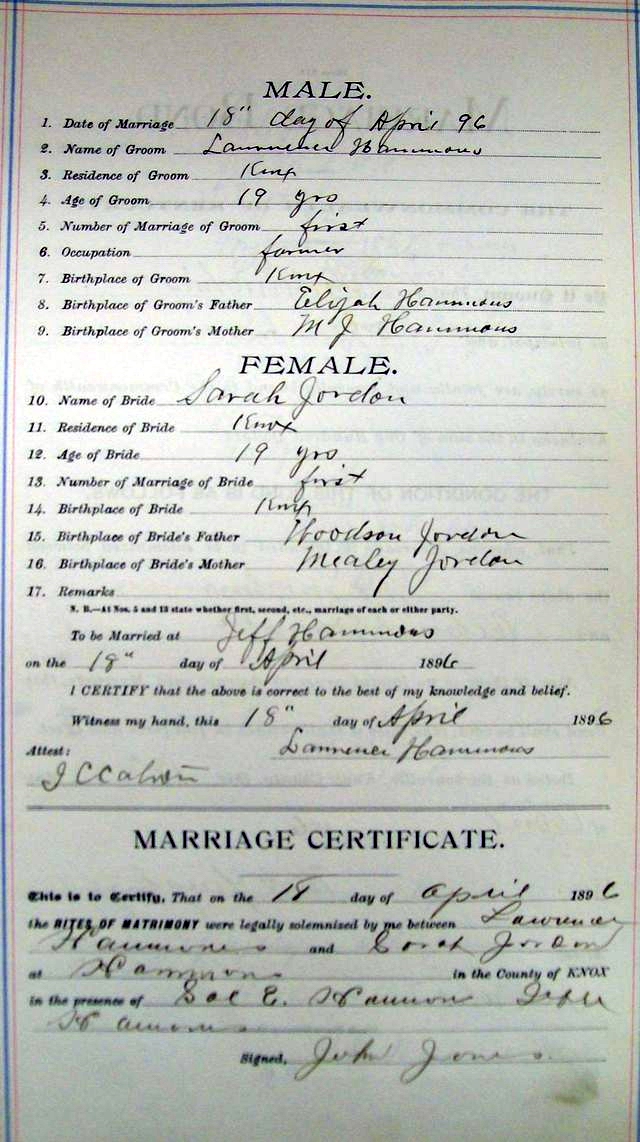 MALE.
1. Date of Marriage 18" day of April 96
2. Name of Groom Lawrence Hammons
3. Residence of Groom Knox
4. Age of Groom 19 yrs
5. Number of Marriage of Groom first
6. Occupation farmer
7. Birthplace of Groom Knox
8. Birthplace of Groom's Father Elijah Hammons
9. Birthplace of Groom's Mother M J Hammons
FEMALE.
10. Name of Bride Sarah Jordon
11. Residence of Bride Knox
12. Age of Bride 19 yrs
13. Number of Marriage of Bride first
14. Birthplace of Bride Knox
15. Birthplace of Bride's Father Woodson Jordon
16. Birthplace of Bride's Mother Mealey Jordon
17. Remarks
N. B.—At Nos. 5 and 13 state whether first, second, etc., marriage of each or either party.
To be Married at Jeff Hammons
on the 18" day of April 1896
I CERTIFY that the above is correct to the best of my knowledge and belief.
Witness my hand, this 18" day of April 1896
Lawrence Hammons
Attest:
J C
MARRIAGE CERTIFICATE.
This is to Certify, That on the 18 day of April 1896
the RITES OF MATRIMONY were legally solemnized by me between Lawrence
Hammons and Sarah Jordon
at Hammons in the County of KNOX
in the presence of E. Hammon
Hammons
Signed, John Jones